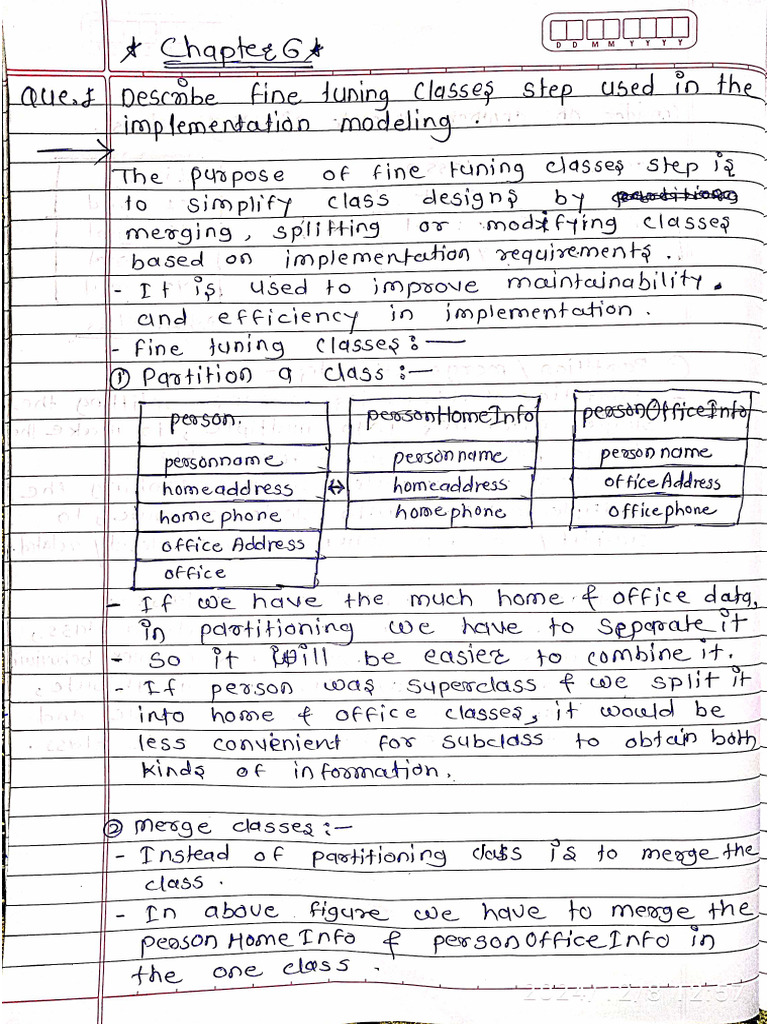 * Chapter 6 *
D D M M Y Y Y Y
Que.1 Describe fine tuning classes step used in the
implementation modeling.
The purpose of fine tuning classes step is
to simplify class designs by
merging, splitting or modifying classes
based on implementation requirements.
- It is used to improve maintainability.
and efficiency in implementation.
- fine tuning classes:—
① Partition a class :—
person. personHomeInfo personOfficeInfo
personname person name person name
homeaddress ↔ homeaddress office Address
home phone home phone office phone
office Address
office
- If we have the much home & office data,
in partitioning we have to separate it
- So it will be easier to combine it.
- If person was superclass & we split it
into home & office classes, it would be
less convenient for subclass to obtain both
kinds of information.
② merge classes:—
- Instead of partitioning class is to merge the
class.
- In above figure we have to merge the
person Home Info & person Office Info in
the one class.
2024/12/8 12:57